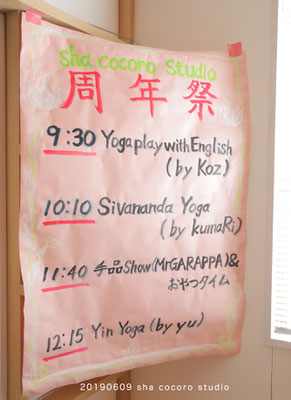 sha cocoro Studio
周年祭
9:30 Yogaplay with English
(by Koz)
10:10 Sivananda Yoga
(by kumaRi)
11:40 手品Show(MrGARAPPA)&
おやつタイム
12:15 Yin Yoga (by yu)
20190609 sha cocoro studio